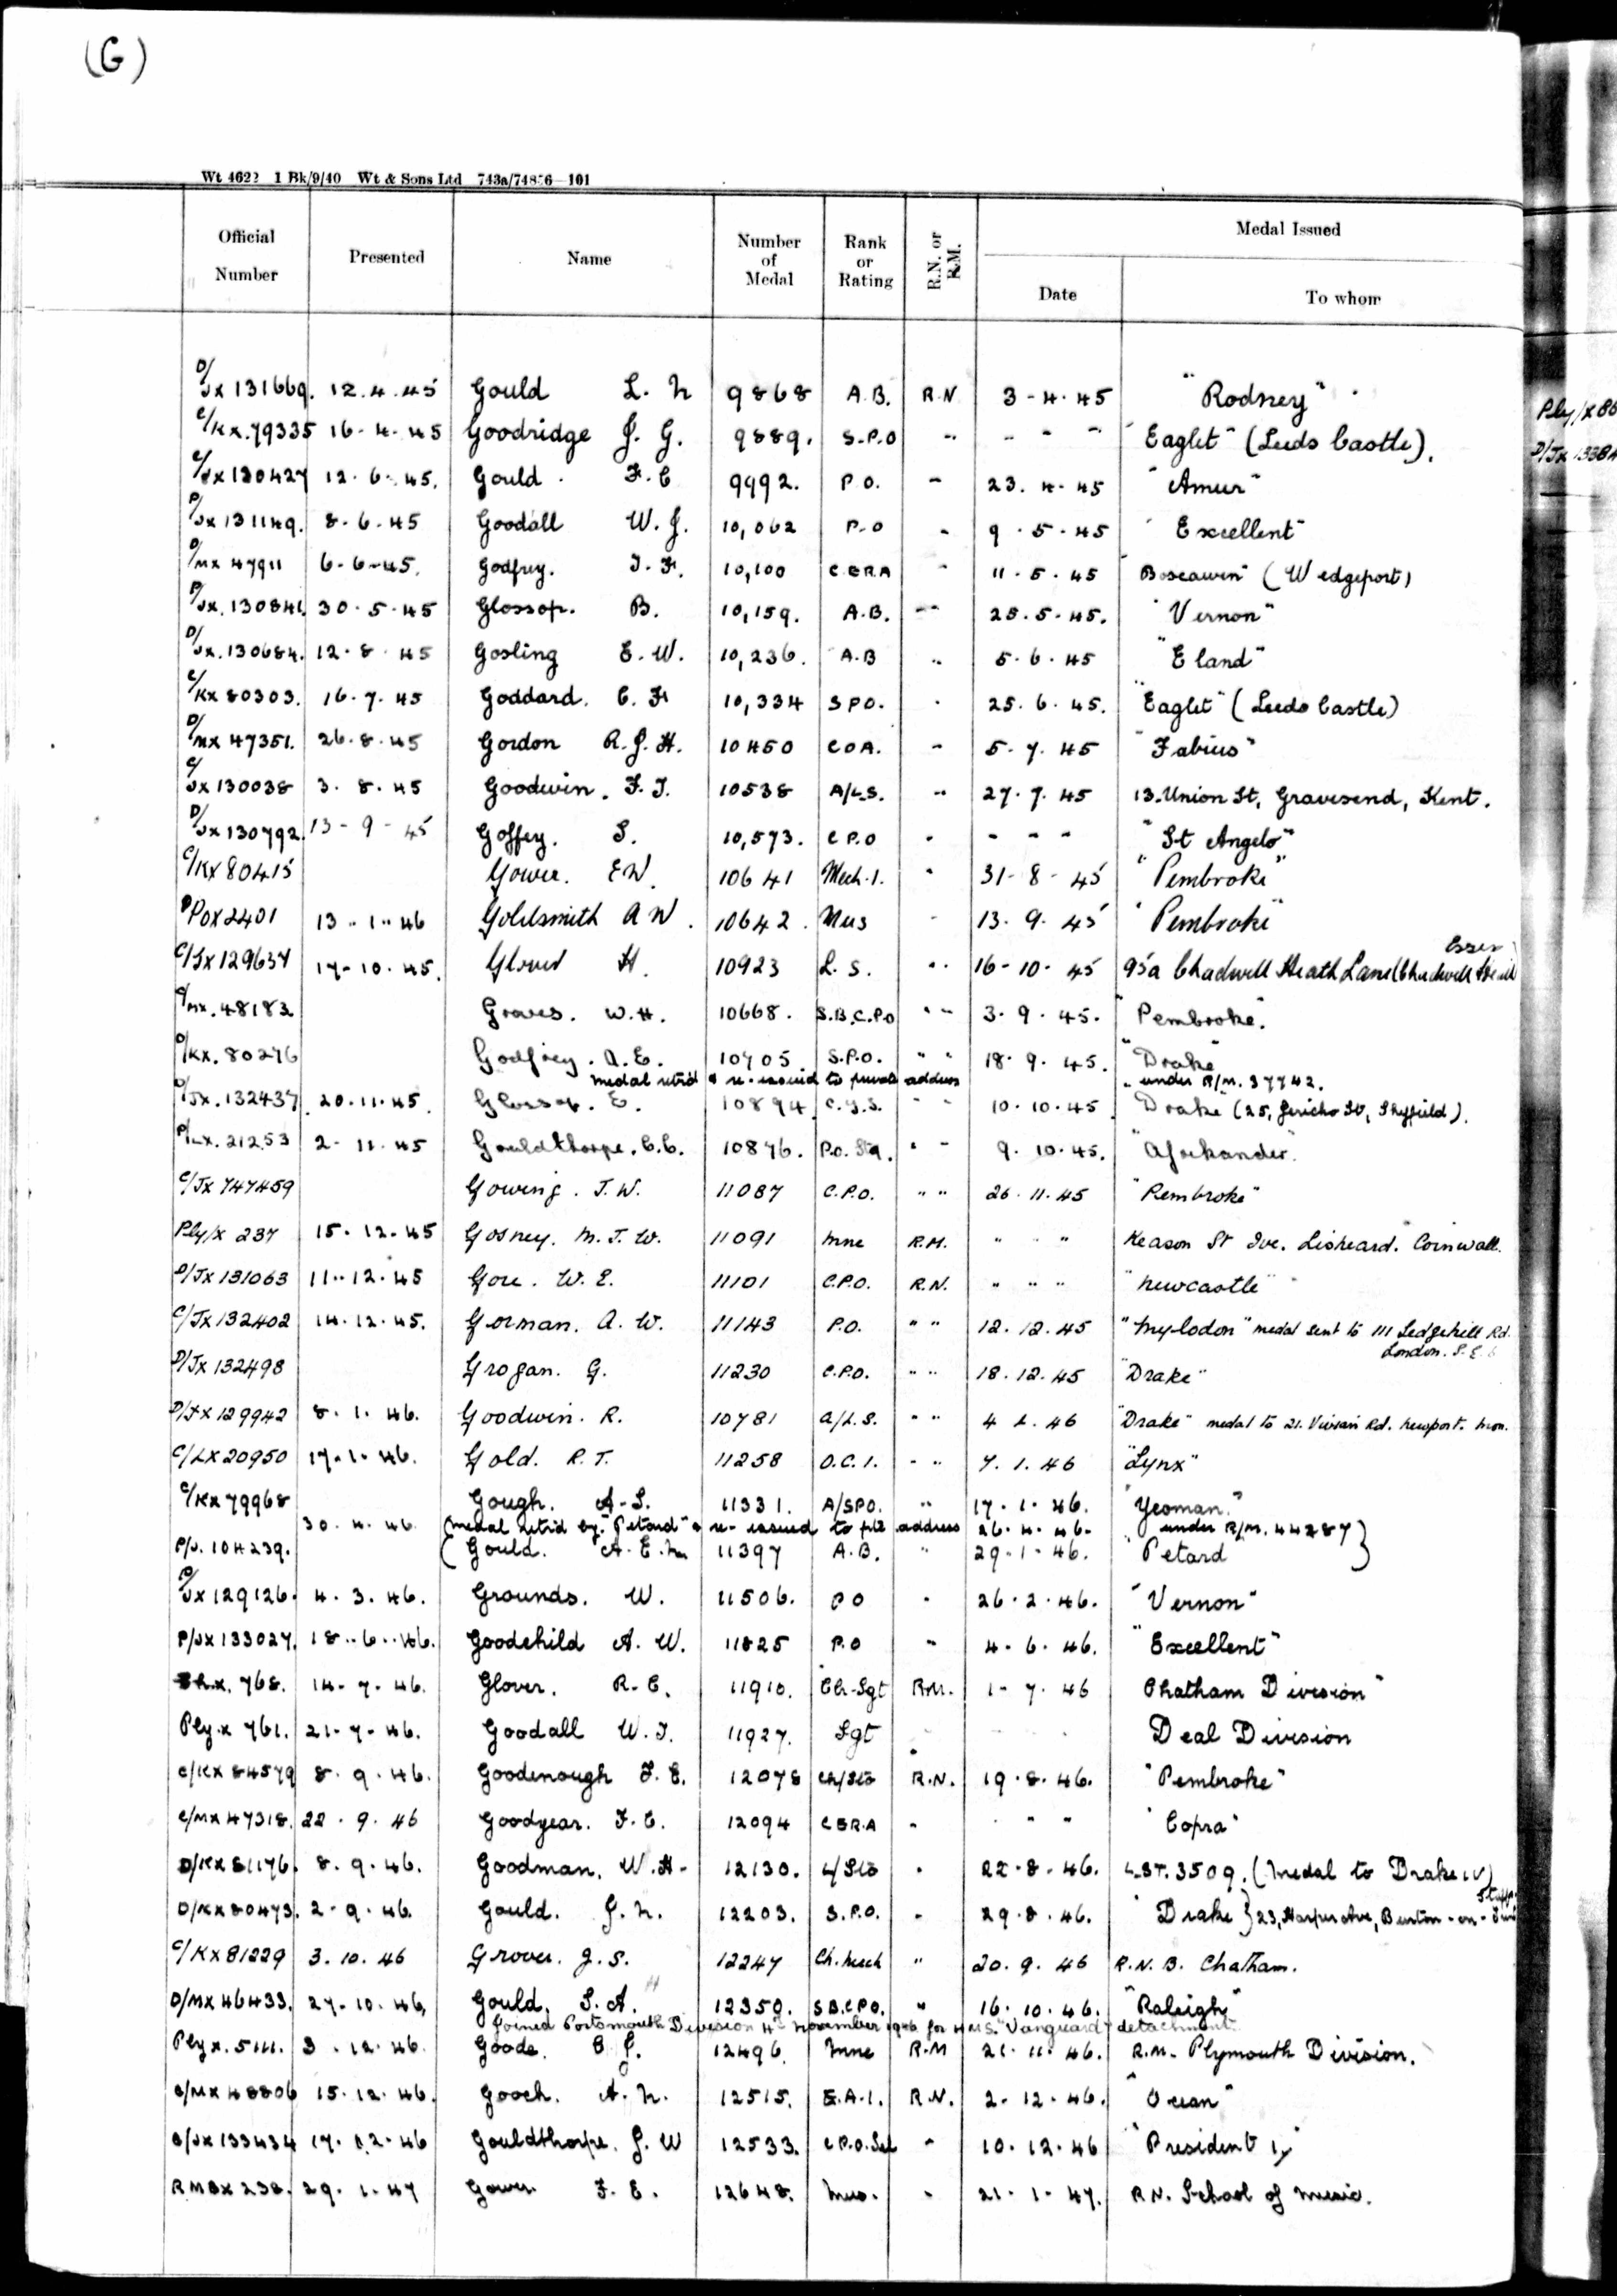 (G)
Wt 4622 1 Bk/9/40 Wt & Sons Ltd 743a/74856 101
Official Number Presented Name Number of Medal Rank or Rating R.N. or R.M. Medal Issued
Date To whom
D/JX 131669. 12.4.45 Gould L. N 9868 A.B. R.N 3-4-45 "Rodney"
C/KX.79335 16-4-45 Goodridge J. G. 9889. S.P.O " " " " "Eaglet" (Leeds Castle).
C/JX 130427 12.6.45. Gould. F.C 9992. P.O. " 23.4.45 "Amur"
P/JX 131149. 8.6.45 Goodall W.J. 10,062 P.O " 9.5.45 "Excellent"
D/MX 47911 6-6-45. Godfrey. T.F. 10,100 C.E.R.A " 11.5.45 Boscawen" (Wedgeport)
P/JX.130841. 30.5.45 Glossop. B. 10,159. A.B. " 25.5.45. "Vernon"
D/JX.130684. 12.8.45 Gosling E.W. 10,236. A.B " 5.6.45 "Eland"
C/KX 80303. 16.7.45 Goddard. C.F 10,334 S P O. " 25.6.45. "Eaglet" (Leeds Castle)
D/MX 47351. 26.8.45 Gordon R.J.H. 10450 C O A. " 5.7.45 "Fabius"
C/JX 130038 3.8.45 Goodwin. F.T. 10538 A/L.S. " 27.7.45 13. Union St, Gravesend, Kent.
D/JX 130792. 13-9-45 Goffey. S. 10,573. C P.O " " " " "St Angelo"
C/KX 80415 Gower. EW. 10641 Mech.1. " 31-8-45 "Pembroke"
POX 2401 13.1.46 Goldsmith A W. 10642. Mus " 13.9.45 "Pembroke"
C/JX 129637 17-10-45. Glover H. 10923 L.S. " 16-10-45 95a Chadwell Heath Lane Chadwell Heath
Essex
C/MX.48183 Graves. W.H. 10668. S.B.C.P.O " " 3.9.45. "Pembroke".
D/KX.80276 Godfrey. A.E. 10705 S.P.O. " " 18.9.45. "Drake"
medal retrd & re-issued to private address " under R/M. 37742.
D/JX.132437 20.11.45 Glossop. E. 10894 C.Y.S. " " 10.10.45 Drake" (25, Jericho St, Sheffield).
P/LX.21253 2-11-45 Gouldthorpe. C.C. 10876. P.O. Std. " " 9.10.45. "Afrikander".
C/JX 747459 Gowing. T.W. 11087 C.P.O. " " 26.11.45 "Pembroke"
Ply/X 237 15.12.45 Gosney. M.J.W. 11091 Mne R.M. " " " Keason St Ive. Liskeard. Cornwall.
D/JX 131063 11.12.45 Gore. W.E. 11101 C.P.O. R.N. " " " "Newcastle"
C/JX 132402 14.12.45. Gorman. A.W. 11143 P.O. " " 12.12.45 "Mylodon" medal sent to 111 Sedgehill Rd.
London. S.E.6
D/JX 132498 Grogan. G. 11230 C.P.O. " " 18.12.45 "Drake"
D/JX 129942 8.1.46. Goodwin. R. 10781 A/L.S. " " 4 1.46 "Drake" medal to 21. Vivian Rd. Newport. Mon.
C/LX 20950 17.1.46. Gold. R.T. 11258 O.C.1. " " 7.1.46 "Lynx"
C/KX 79968 Gough. A.S. 11331. A/SPO. " 17.1.46. "Yeoman."
30.4.46 (medal retrd by "Petard" & re-issued to pte address 26.4.46. " under R/M. 44287
P/J. 104239. (Gould. A.E.M 11397 A.B. " 29.1.46. "Petard }
P/JX 129126. 4.3.46. Grounds. W. 11506. P O " 26.2.46. "Vernon"
P/JX 133027. 18.6.46. Goodchild A.W. 11825 P.O " 4.6.46. "Excellent"
Ch.X. 768. 14-7-46. Glover. R.C. 11910. Clr-Sgt R.M. 1-7.46 Chatham Division"
Ply.x 761. 21-7-46. Goodall W.J. 11927. Sgt " Deal Division
C/KX 84579 8.9.46. Goodenough F.E. 12078 Ch/Sto R.N. 19.8.46. "Pembroke"
C/MX 47318. 22.9.46 Goodyear. F.C. 12094 C E R.A " " " " "Copra"
D/KX 81176. 8.9.46. Goodman. W.H. 12130. L/Sto " 22.8.46. L.ST. 3509. (Medal to Drake IV)
D/KX 80473. 2-9.46. Gould. J.N. 12203. S.P.O. " 29.8.46. "Drake } 23, Harper Ave, Burton-on-Trent
Staffs
C/KX 81229 3.10.46 Grover. J.S. 12247 Ch. Mech " 20.9.46 R.N.B. Chatham.
D/MX 46433. 27-10.46. Gould. S.A. 12350. S B.C.P.O. " 16.10.46. "Raleigh"
Joined Portsmouth Division 4th November 1946 for H.M.S. "Vanguard" detachment.
Ply x. 5111. 3.12.46. Goode. C J. 12496. Mne R.M 21.11.46. R.M. Plymouth Division.
C/MX 48806 15.12.46. Gooch. A.N. 12515. E.A.1. R.N. 2-12-46. "Ocean"
C/JX 133434 17.12.46 Gouldthorpe. J.W 12533. C P.O. Tel " 10.12.46 "President 1"
RMBX 238. 29.1.47 Gower F.E. 12648. Mus. " 21.1.47. R N. School of Music.